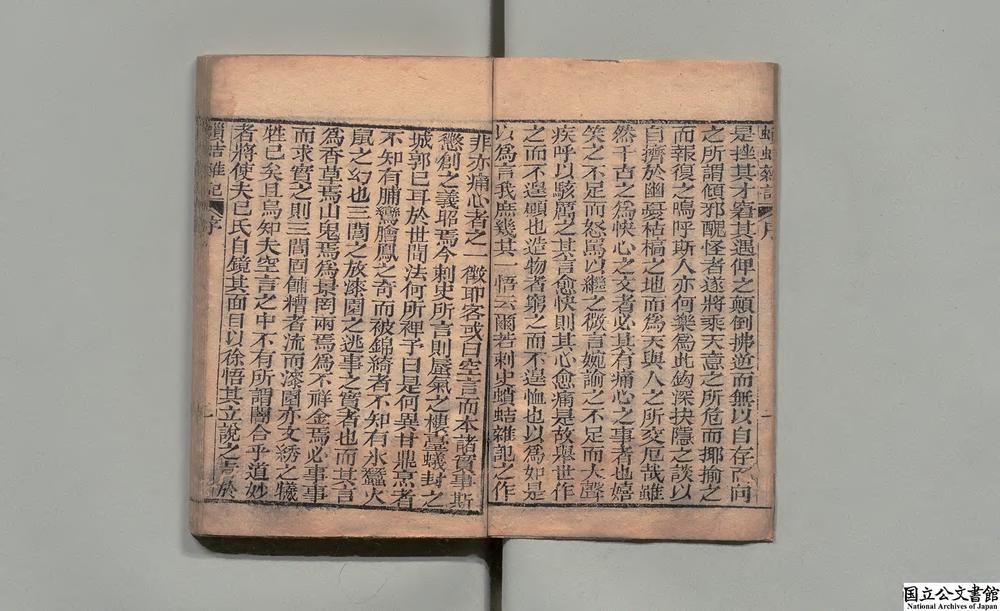 蛣雜記 序
是挫其才窘其遇俾之顛倒拂逆而無以自存而向
之所謂傾邪醜怪者遂將乘天意之所危而揶揄之
而報復之嗚呼斯人亦何樂為此鈎深抉隱之談以
自擠於幽憂枯槁之地而為天與人之所交厄哉雖
然千古之為快心之文者必其有痛心之事者也嬉
笑之不足而怒罵以繼之微言婉諭之不足而大聲
疾呼以駭厲之其言愈快則其心愈痛是故舉世作
之而不遑顧也造物者窮之而不遑恤也以為如是
以為言我庶幾其一悟云爾若刺史蟫蛣雜記之作
非亦痛心者之一徵耶客或曰空言而本諸實事斯
懲創之義昭焉今刺史所言則蜃氣之樓臺蟻封之
城郭已耳於世間法何所裨予曰是何異甘鼎烹者
不知有脯鸞膾鳳之奇而被錦綺者不知有氷蠶火
鼠之幻也三閭之放漆園之逃事之實者也而其言
為香草焉山鬼焉為景罔兩焉為不祥金焉必事事
而求實之則三閭罔餔糟者流而漆園亦文綉之犧
牲已矣且烏知夫空言之中不有所謂闇合乎道妙
者將使夫己氏自鏡其面目以徐悟其立說之旨於
蛣雜記 序
国立公文書館
National Archives of Japan